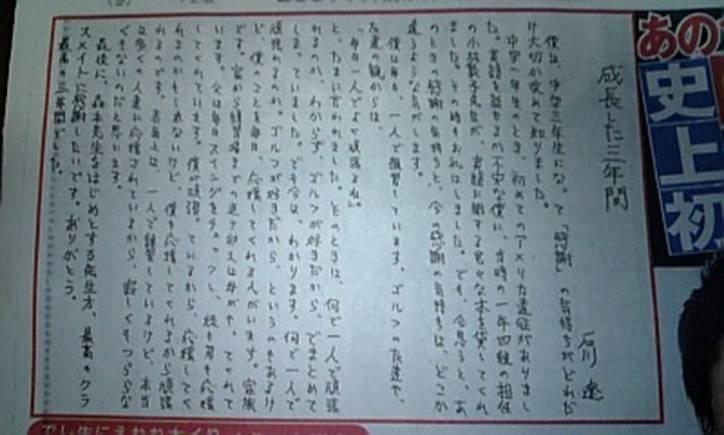 あの
史上初
成長した三年間
石川 遼
僕は、中学三年生になって「感謝」の気持ちがどれだ
け大切か改めて知りました。
中学一年生のとき、初めてのアメリカ遠征がありまし
た。英語を話せるか不安な僕に、当時の一年四組の担任
の小林敦子先生が、英語に関する色々な本を貸してくれ
ました。その時もお礼はしました。でも、今思うと、あ
のときの感謝の気持ちと、今の感謝の気持ちは、どこか
違うような気がします。
僕は毎日、一人で練習しています。ゴルフの友達や、
友達の親からは、
「毎日一人でよく頑張るね」
と、たまに言われました。そのときは、何で一人で頑張
れるのか、わからず、ゴルフが好きだから、でまとめて
しまっていました。でも今は、わかります。何で一人で
頑張れるのか。ゴルフが好きだから、というのもあるけ
ど、僕のことを毎日、応援してくれる人がいます。家族
です。家から練習場までの送り迎えは母がやってくれて
います。父は毎日スイングをチェックし、妹も弟も応援
してくれています。僕が頑張っているから、応援してく
れるのかもしれないけど、僕を応援してくれるから頑張
れるのです。表面上は、一人で練習しているけど、本当
は多くの人達に応援されているから、寂しくもつらくな
くもないのだと思います。
最後に、森本先生をはじめとする先生方、最高のクラ
スメイトに感謝したいです。ありがとう。
最高の三年間でした。